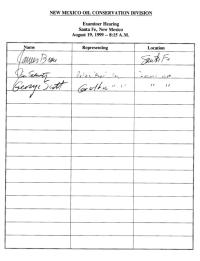 NEW MEXICO OIL CONSERVATION DIVISION
Examiner Hearing
Santa Fe, New Mexico
August 19, 1999 – 8:15 A.M.
Name Representing Location
James Bruce Santa Fe
George Scott " "